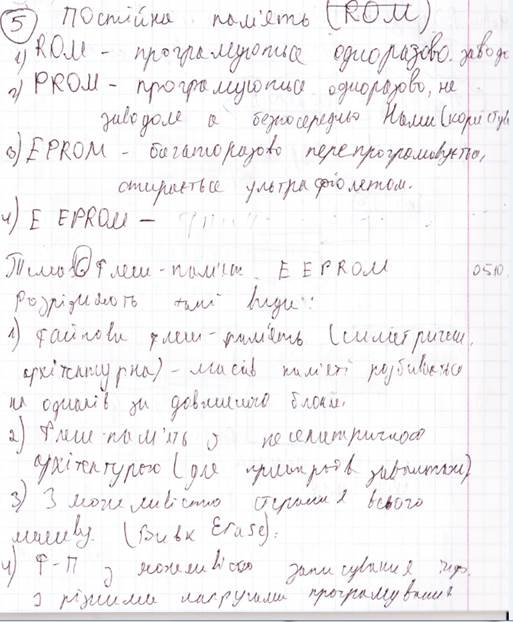 5 Постійна пам'ять (ROM)
1) ROM - програмуються одноразово. завод
2) PROM - програмуються одноразово, не
заводом а безпосередньо Нами (користув
3) EPROM - багаторазово перепрограмовується,
стирається ультрафіолетом.
4) E EPROM -
Тема 6 Флеш-пам'ять EEPROM 05.10.
Розрізняють такі види:
1) Файлова флеш-пам'ять (симетрична
архітектурна) - масив пам'яті розбивається
на однакові за довжиною блоки.
2) Флеш-пам'ять з несиметричною
архітектурою (для
3) З можливістю стирання всього
масиву. (Bulk Erase).
4) Ф-П з можливістю записування
з різними напругами програмування